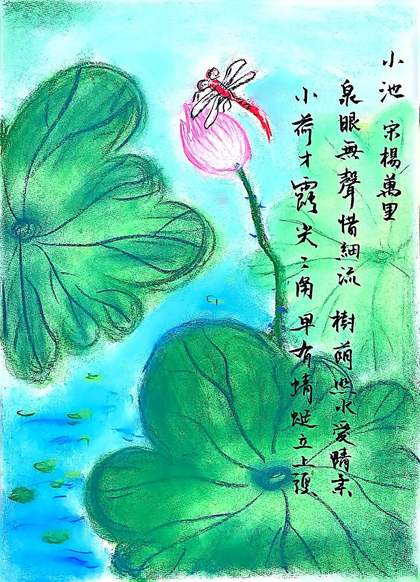 小池 宋楊萬里
泉眼無聲惜細流 樹荫照水愛晴柔
小荷才露尖々角 早有蜻蜓立上頭